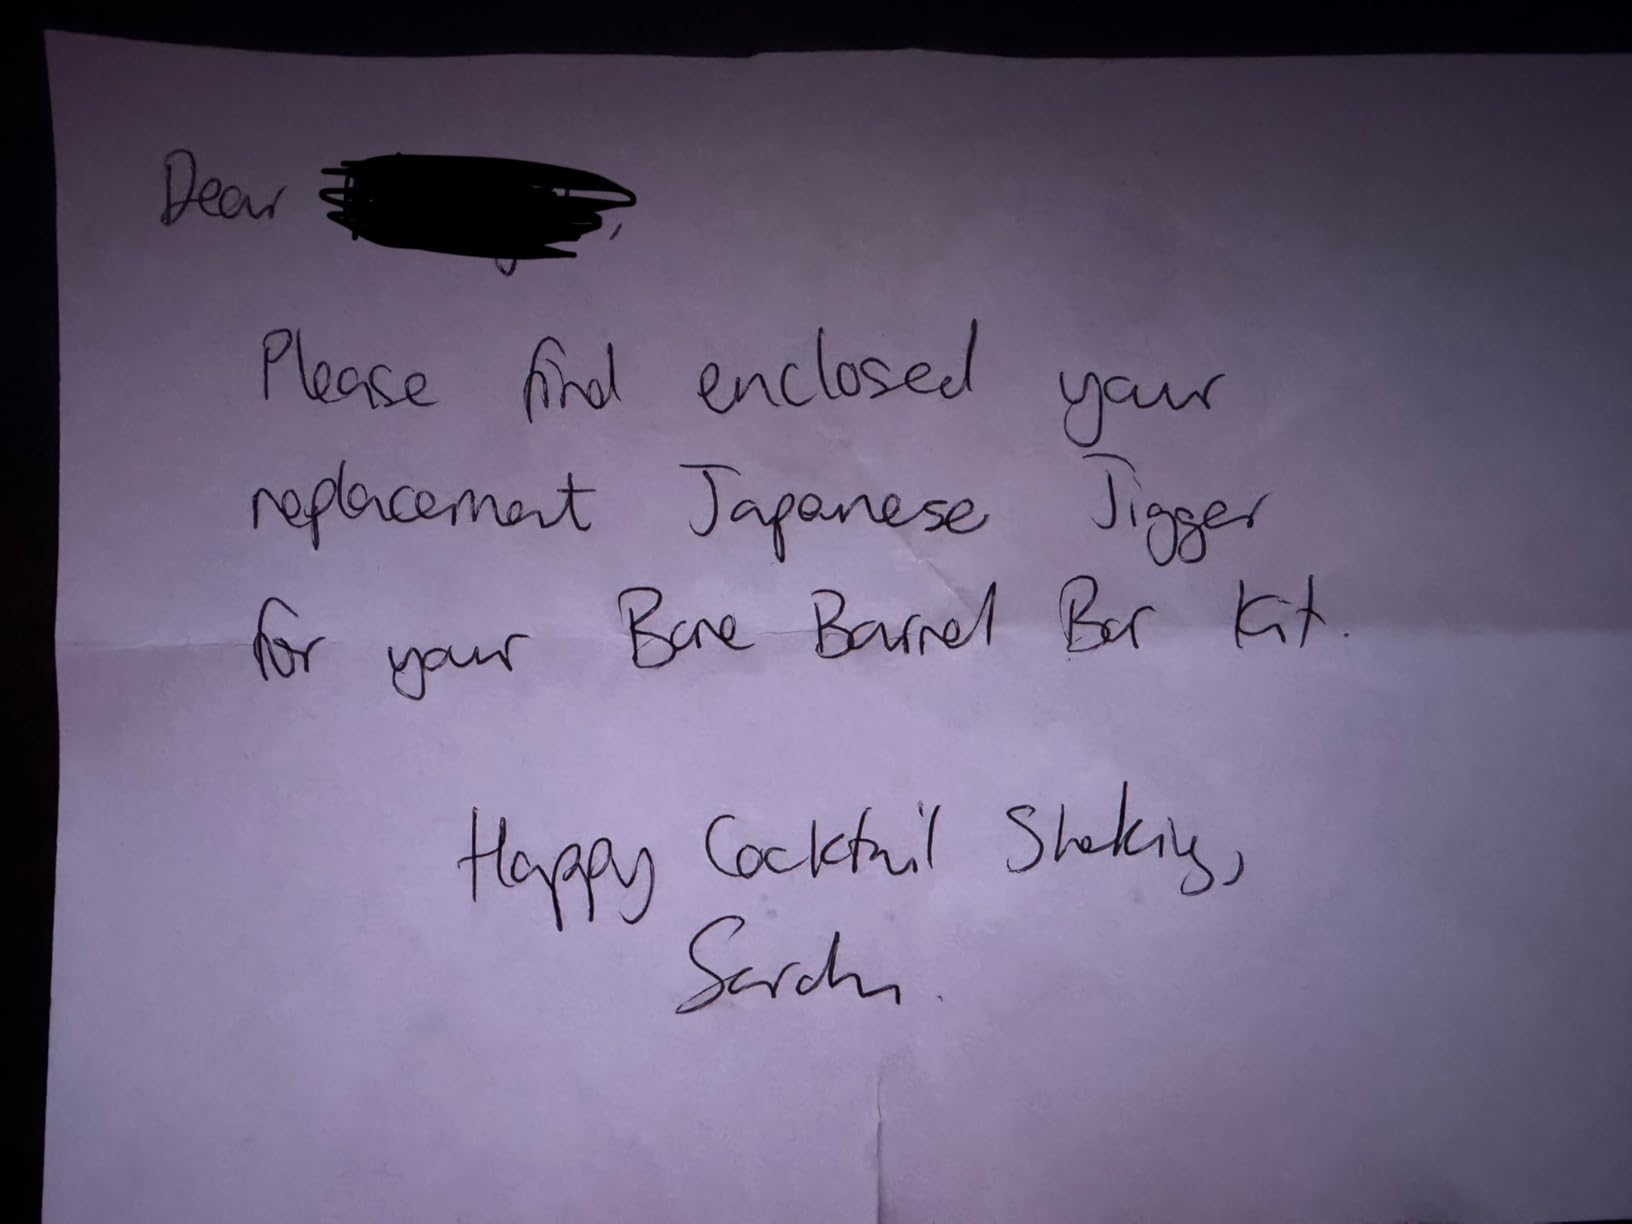 Dear ,
Please find enclosed your
replacement Japanese Jigger
for your Bare Barrel Bar Kit.
Happy Cocktail Shaking,
Sarah.